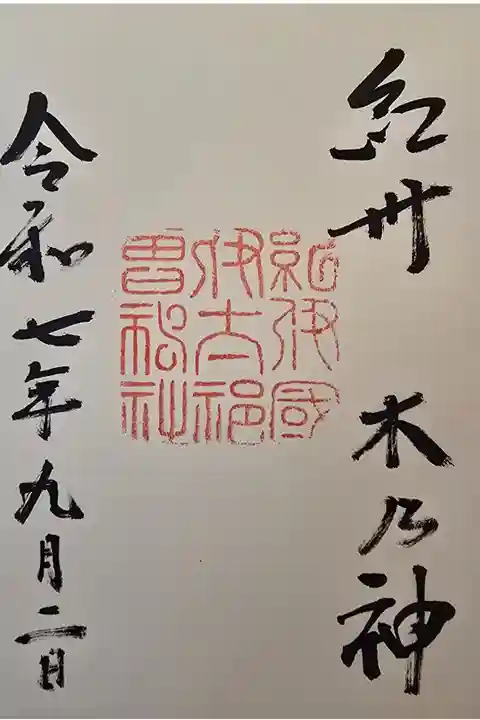 紀州 木乃神
紀伊國
伊太祁
曽神社
令和七年九月二日